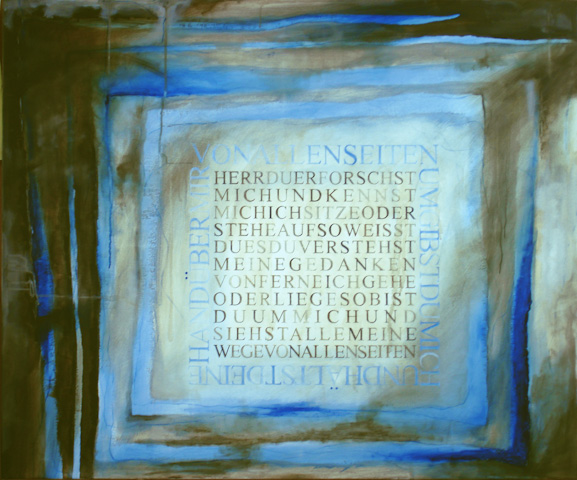 HERRDUERFORSCHST
MICHUNDKENNST
MICHICHSITZEODER
STEHEAUFSOWEISST
DUESDUVERSTEHST
MEINEGEDANKEN
VONFERNEICHGEHE
ODERLIEGESOBIST
DUUMMICHUND
SIEHSTALLEMEINE
WEGEVONALLENSEITEN
VONALLENSEITEN
UMGIBSTDUMICH
UNDHÄLTSTDEINE
HANDÜBERMIR